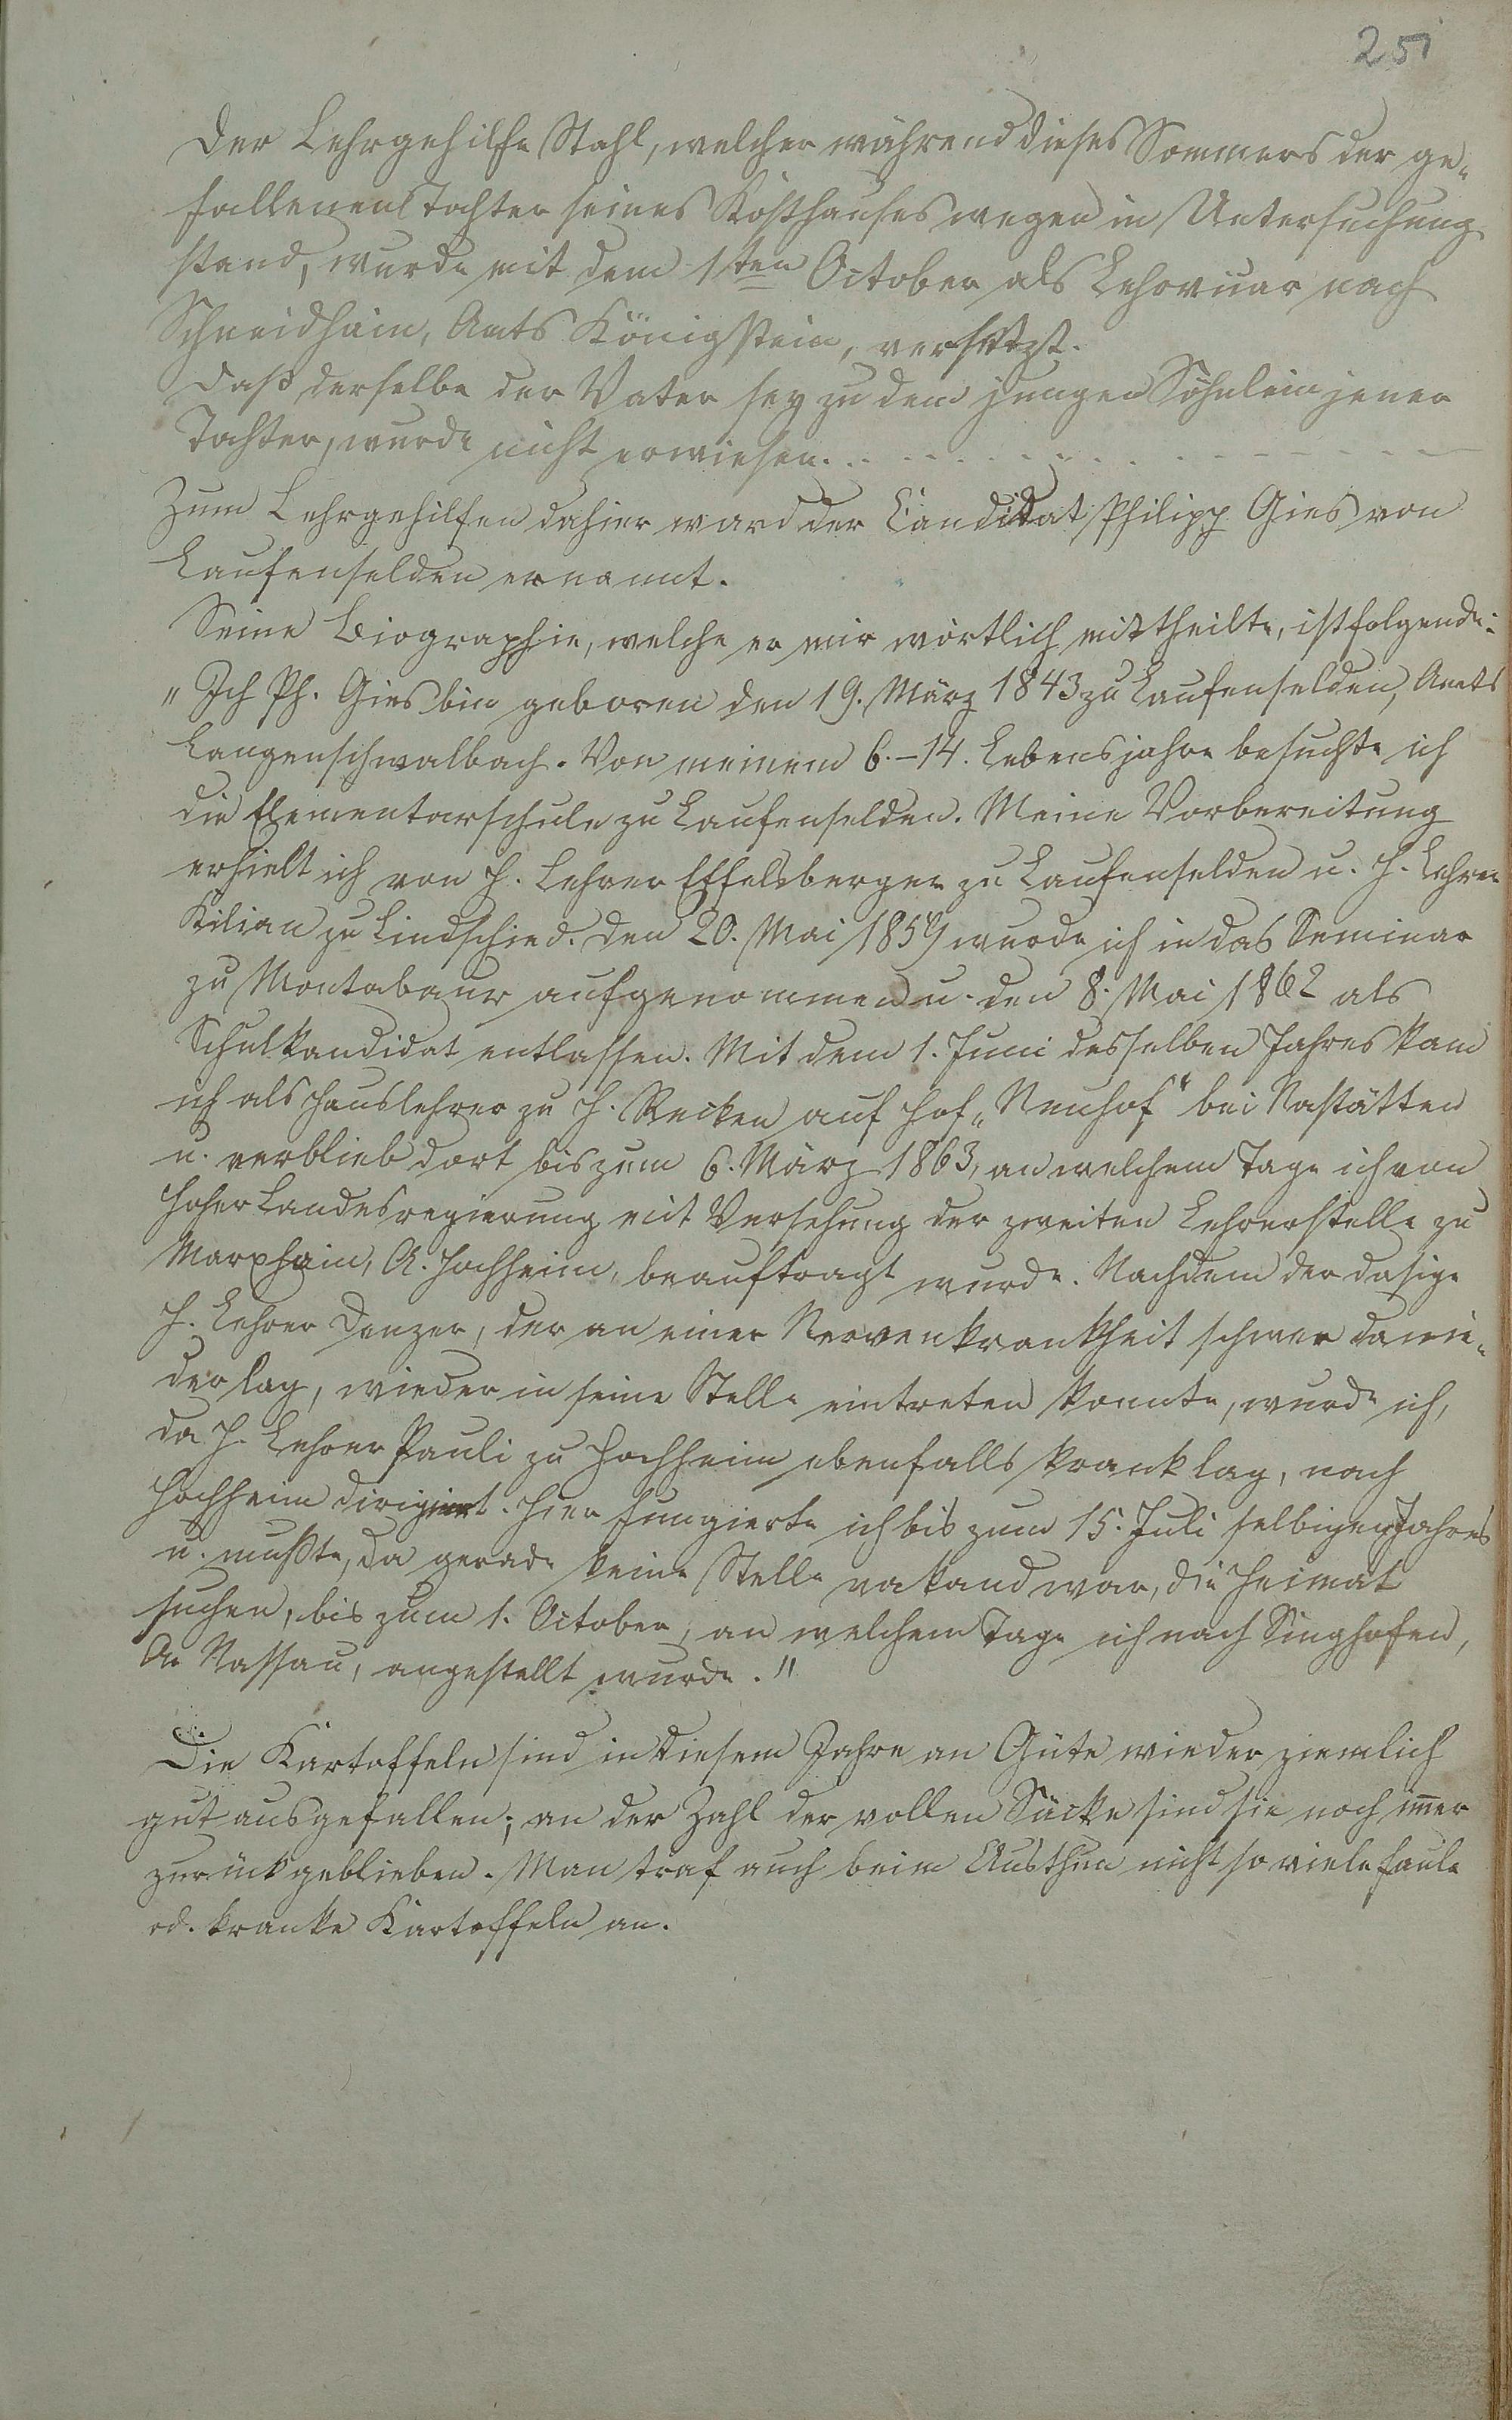 251
Der Lehrgehilfe Stahl, welcher während dieses Sommers der ge-
fallenen Tochter seines Kosthauses wegen in Untersuchung
stand, wurde mit dem 1ten October als Lehrvicar nach
Schneidhain, Amts Königstein, versetzt.
Daß derselbe der Vater sey zu dem jungen Söhnlein jener
Tochter, wurde nicht erwiesen.
Zum Lehrgehilfen dahier ward der Candidat Philipp Gies von
Laufenselden ernannt.
Seine Biographie, welche er mir wörtlich mittheilte, ist folgende:
"Ich Ph. Gies bin geboren den 19. März 1843 zu Laufenselden, Amts
Langenschwalbach. Von meinem 6.-14. Lebensjahre besuchte ich
die Elementarschule zu Laufenselden. Meine Vorbereitung
erhielt ich von H. Lehrer Effelsberger zu Laufenselden u. H. Lehrer
Kilian zu Lindschied. Den 20. Mai 1859 wurde ich in das Seminar
zu Montabaur aufgenommen u. den 8. Mai 1862 als
Schulkandidat entlassen. Mit dem 1. Juni desselben Jahres kam
ich als Hauslehrer zu H. Recken auf Hof "Neuhof" bei Nastätten
u. verblieb dort bis zum 6. März 1863, an welchem Tage ich von
hoher Landesregierung mit Versehung der zweiten Lehrerstelle zu
Marxhain, A. Hochheim, beauftragt wurde. Nachdem der dasige
H. Lehrer Denzer, der an einer Nervenkrankheit schwer darnie-
der lag, wieder in seine Stelle eintreten konnte, wurde ich,
da H. Lehrer Pauli zu Hochheim ebenfalls krank lag, nach
Hochheim dirigiert. Hier fungierte ich bis zum 15. Juli selbigen Jahres
u. mußte, da gerade keine Stelle vakand war, die Heimat
suchen, bis zum 1. October, an welchem Tage ich nach Singhofen,
A. Nassau, angestellt wurde."
Die Kartoffeln sind in diesem Jahre an Güte wieder ziemlich
gut ausgefallen; an der Zahl der vollen Säcke sind sie noch im̅er
zurückgeblieben. Man traf auch beim Austhun nicht so viele faule
od. kranke Kartoffeln an.